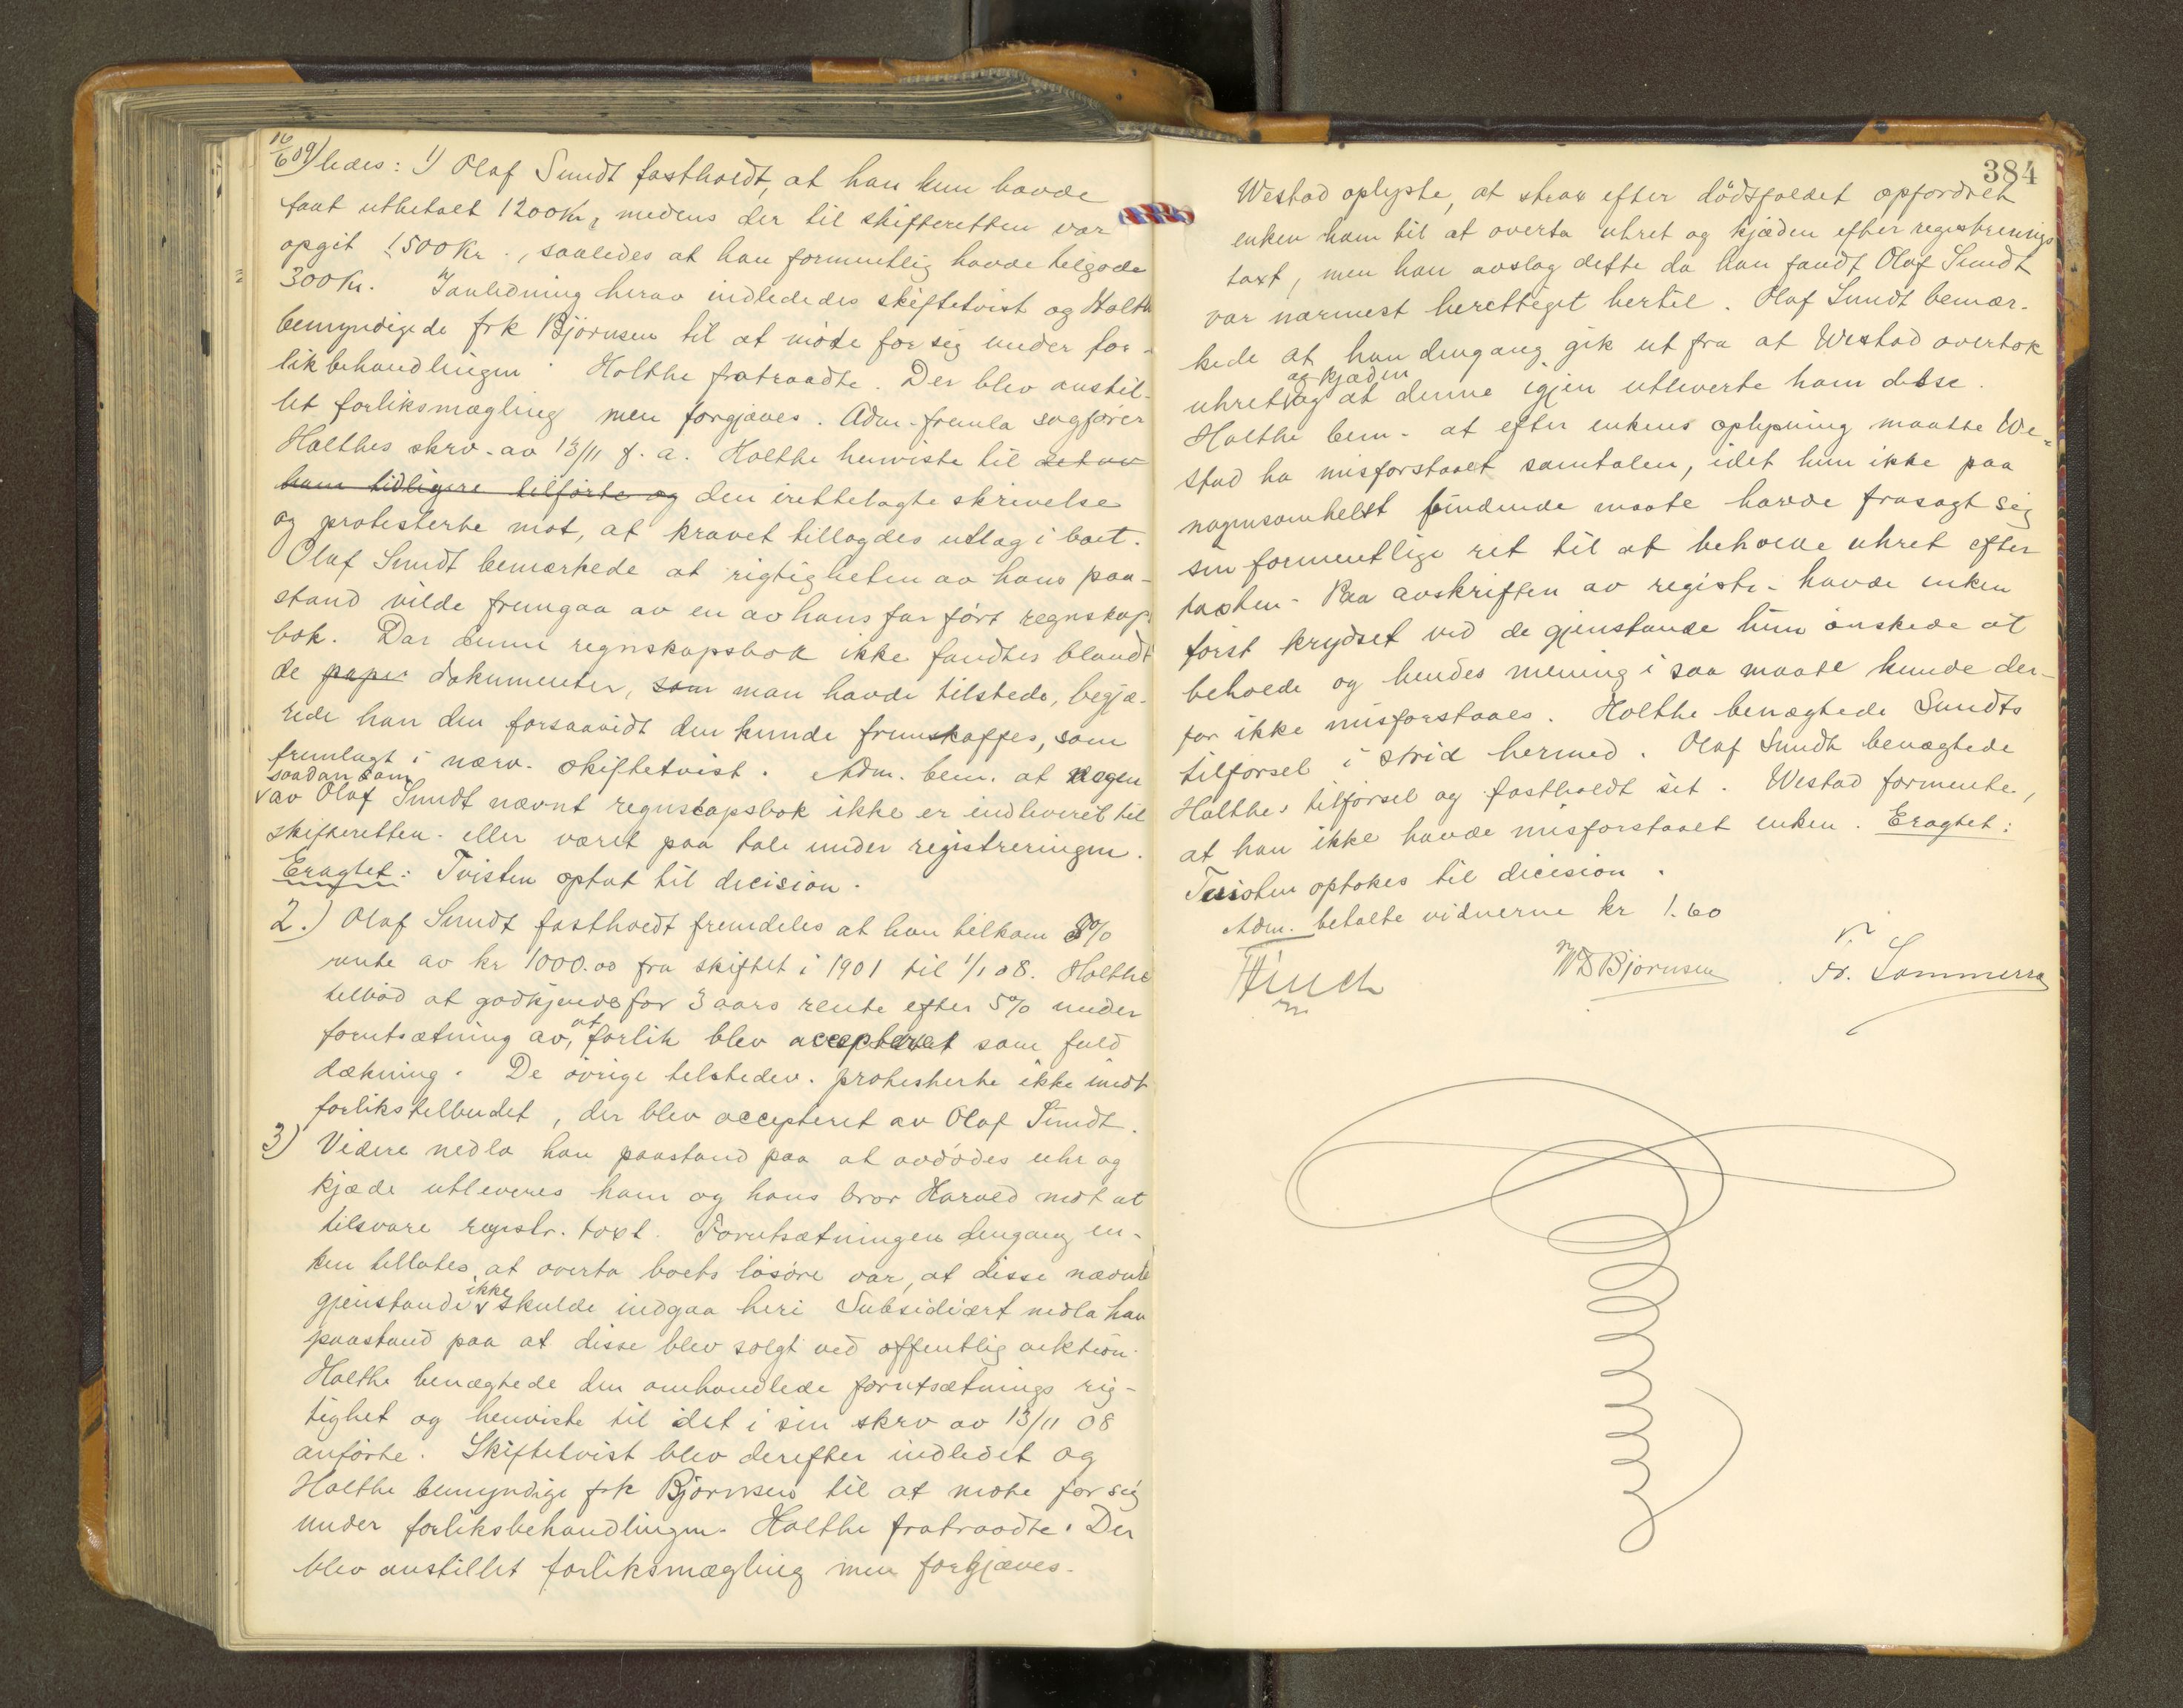 16/6 09) ledes: 1) Olaf Sundt fastholdt, at han kun havde
faat utbetalt 1200 Kr, medens der til skifteretten var
opgit 1500 Kr., saaledes at han formentlig havde tilgode
300 Kr. I anledning herav indlededes skiftetvist og Holthe
bemyndigede frk Björnsen til at möte for sig under for-
likbehandlingen. Holthe fratraadte. Der blev anstil-
let forliksmægling men forgjæves. Adm. fremla sagförer
Holthes skrv. av 13/11 f. a. Holthe henviste til det av
ham tidligere tilförte og den irettelagte skrivelse
og protesterte mot, at kravet tillagdes utlæg i boet.
Olaf Sundt bemærkede at rigtigheten av hans paa-
stand vilde fremgaa av en av hans far fört regnskaps
bok. Dar denne regnskapsbok ikke fandtes blandt
de papir dokumenter, som man havde tilstede, begjæ-
rede han den forsaavidt den kunde fremskaffes, som
fremlagt i nærv. skiftetvist. Adm. bem. at nogen
saadan som
av Olaf Sundt nævnt regnskapsbok ikke er indleveret til
skifteretten eller været paa tale under registreringen.
Eragtet: Tvisten optat til decision.
2.) Olaf Sundt fastholdt fremdeles at han tilkom 5%
rente av kr 1000.00 fra skiftet i 1901 til 1/1 08. Holthe
tilbød at godkjende for 3 aars rente efter 5% under
at
forutsætning av, forlik blev accepteret som fuld
dækning. De övrige tilstedev. protesterte ikke imot
forlikstilbudet, der blev accepteret av Olaf Sundt.
3) Videre nedla han paastand paa at avdödes uhr og
kjæde utleveres ham og hans bror Harald mot at
tilsvare registr. taxt. Forutsætningen dengang en-
ken tillotes at overta boets lösöre var, at disse nævnte
ikke
gjenstande skulde indgaa heri Subsidiært nedla han
paastand paa at disse blev solgt ved offentlig auktion.
Holthe benægtede den omhandlede forutsætnings rig-
tighet og henviste til det i sin skrv av 13/11 08
anförte. Skiftetvist blev derefter indledet og
Holthe bemyndige frk Björnsen til at möte for sig
under forliksbehandlingen. Holthe fratraadte. Der
blev anstillet forliksmægling men forgjæves.
384
Westad oplyste, at strax efter dödsfaldet opfordret
enken ham til at overta uhret og kjæden efter registrerings
taxt, men han avslog dette da han fandt Olaf Sundt
var nærmest berettiget hertil. Olaf Sundt bemær-
kede at han dengang gik ut fra at Westad overtok
og kjæden
uhret og at denne igjen utleverte ham disse.
Holthe bem. at efter enkens oplysning maatte We-
stad ha misforstaaet samtalen, idet hun ikke paa
nogensomhelst bindende maate havde frasagt sig
sin formentlige ret til at beholde uhret efter
taxten. Paa avskriften av registr. havde enken
först krydset ved de gjenstande hun önskede at
beholde og hendes mening i saa maate kunde der-
for ikke misforstaaes. Holthe benægtede Sundts
tilförsel i strid hermed. Olaf Sundt benægtede
Holthes tilförsel og fastholdt sit. Westad formente,
at han ikke havde misforstaaet enken. Eragtet:
Tvisten optokes til decision.
Adm. betalte vidnerne kr 1.60
Finch
Björnsen
Fr. Sommerra